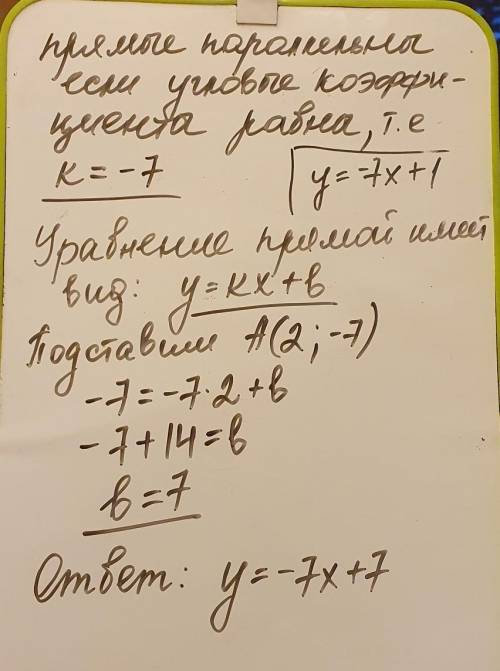 прямые параллельны
если угловые коэффи-
циента равна, т.е
к = -7 y = -7x+1
Уравнение прямой имеет
вид: y = кx + в
Подставим A(2; -7)
-7 = -7·2 + в
-7 + 14 = в
в = 7
Ответ: y = -7x+7